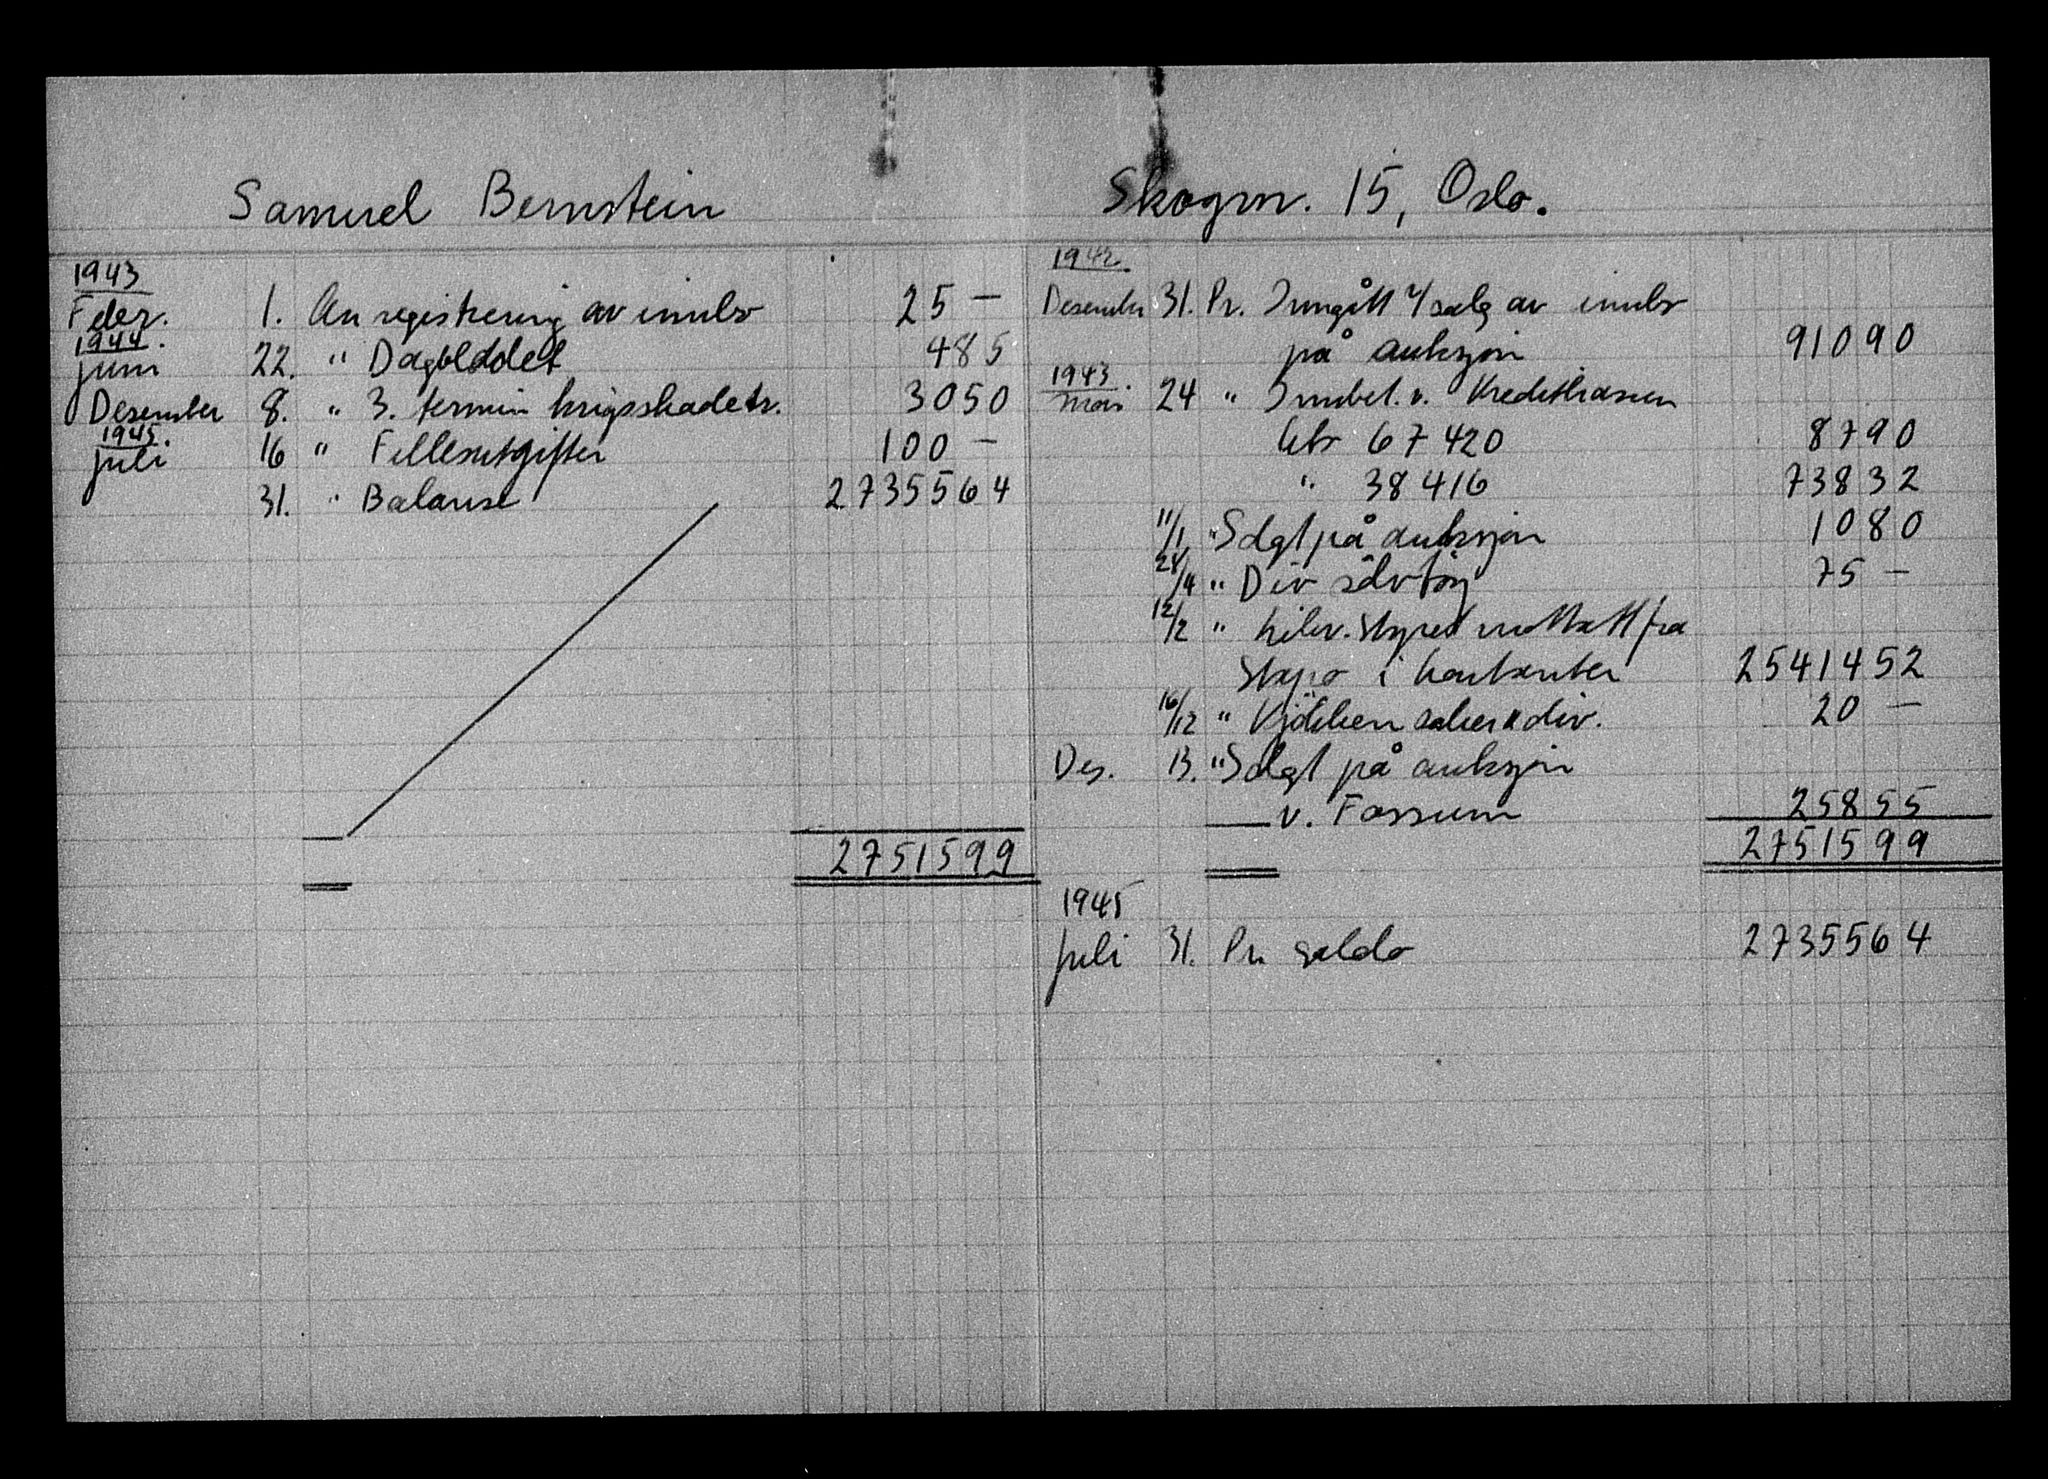 Samuel Bernstein
1943
Febr. 1. An registrering av innbo 25 —
1944.
juni 22. " Dagbladet 485
Desember 8. " 3. termin krigsskadetr. 3050
1945.
juli 16 " Fellesutgifter 100 —
31. " Balanse 2735564
2751599
Skogvn. 15, Oslo.
1942.
Desember 31. Pr. Inngått v/salg av innbo
på auksjon 91090
1943.
mars 24 " Innbet. v. Kreditkassen
67420 8790
" 38416 73832
11/1 " Solgt på auksjon 1080
28/4 " Div sölvtöy 75 —
12/2 " Likv. styret mottatt fra
Stapo i kontanter 2541452
16/12 " Kjökkensaker & div. 20 —
Des. 13. " Solgt på auksjon
v. Fossum 25855
2751599
1945
juli 31. Pr. saldo 2735564